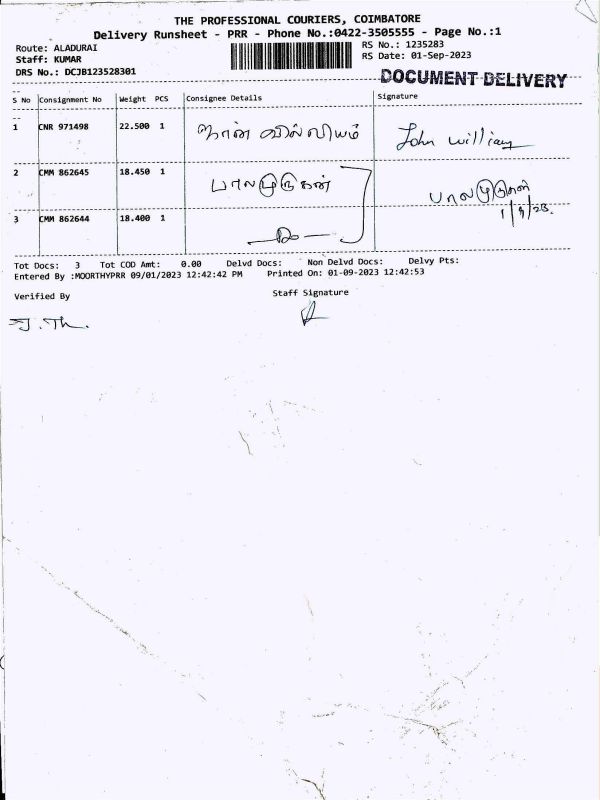 THE PROFESSIONAL COURIERS, COIMBATORE
Delivery Runsheet - PRR - Phone No.:0422-3505555 - Page No.:1
Route: ALADURAI
RS No.: 1235283
Staff: KUMAR
RS Date: 01-Sep-2023
DRS No.: DCJB123528301
DOCUMENT DELIVERY
S No Consignment No Weight PCS Consignee Details Signature
1 CNR 971498 22.500 1 ஜான் வில்லியம் John William
2 CMM 862645 18.450 1 பாலமுருகன் பாலமுருகன்
1/9/23.
3 CMM 862644 18.400 1
Tot Docs: 3 Tot COD Amt: 0.00 Delvd Docs: Non Delvd Docs: Delvy Pts:
Entered By :MOORTHYPRR 09/01/2023 12:42:42 PM Printed On: 01-09-2023 12:42:53
Verified By Staff Signature